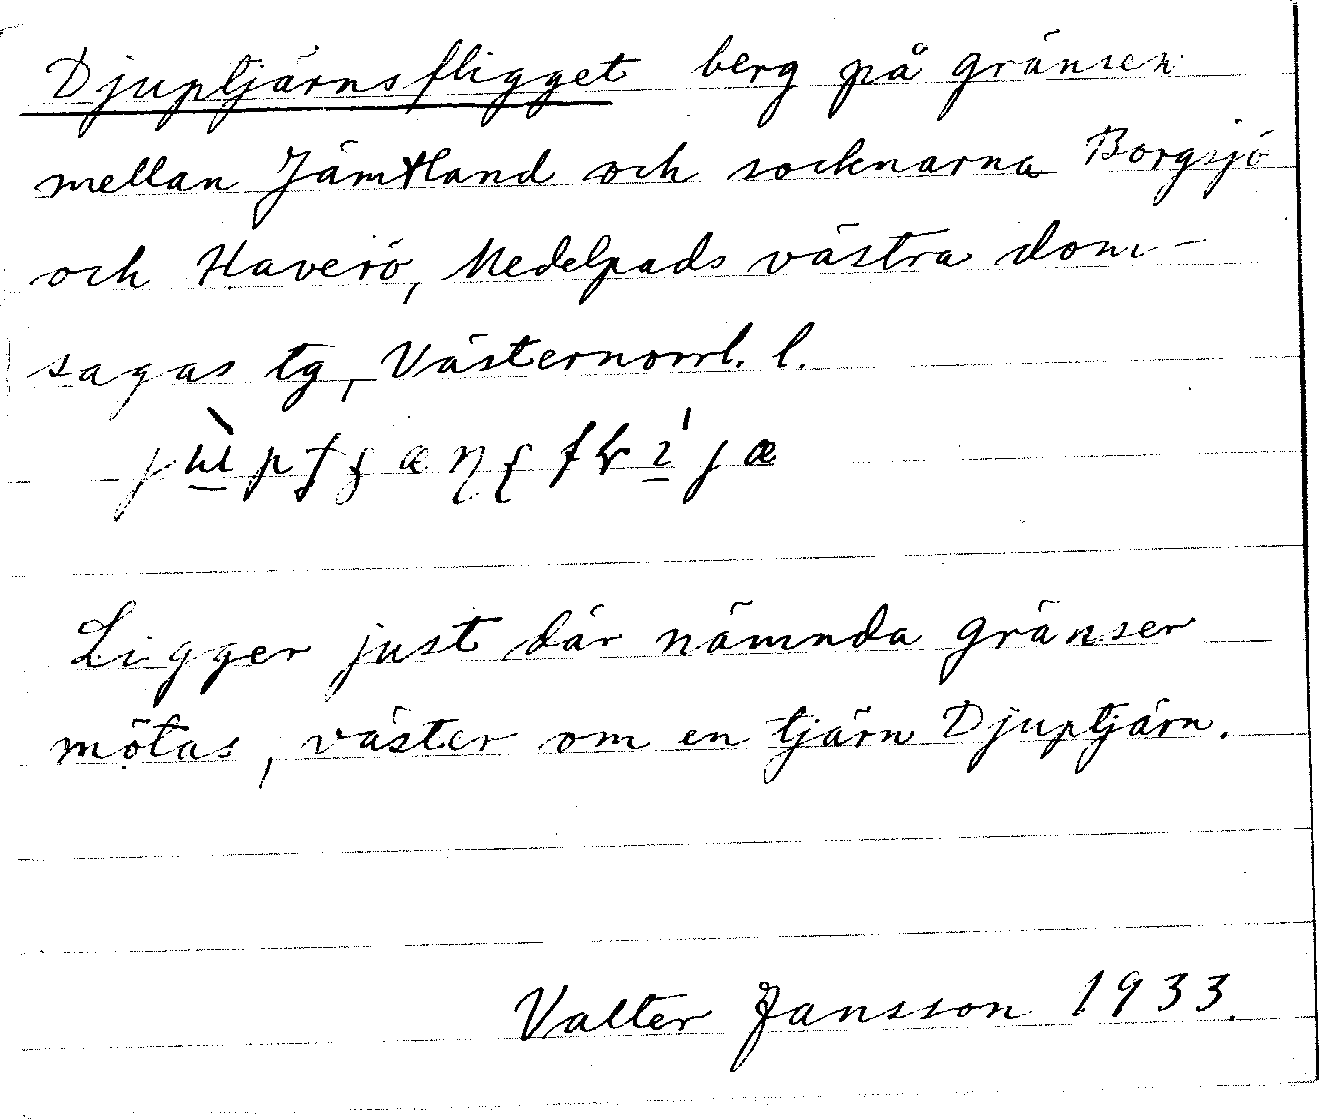 Djuptjärnsfligget berg på gränsen
mellan Jämtland och socknarna Borgsjö
och Haverö, Medelpads västra dom-
sagas tg, Västernorrl. l.
Ligger just där nämnda gränser
mötas, väster om en tjärn Djuptjärn.
Valter Jansson 1933.